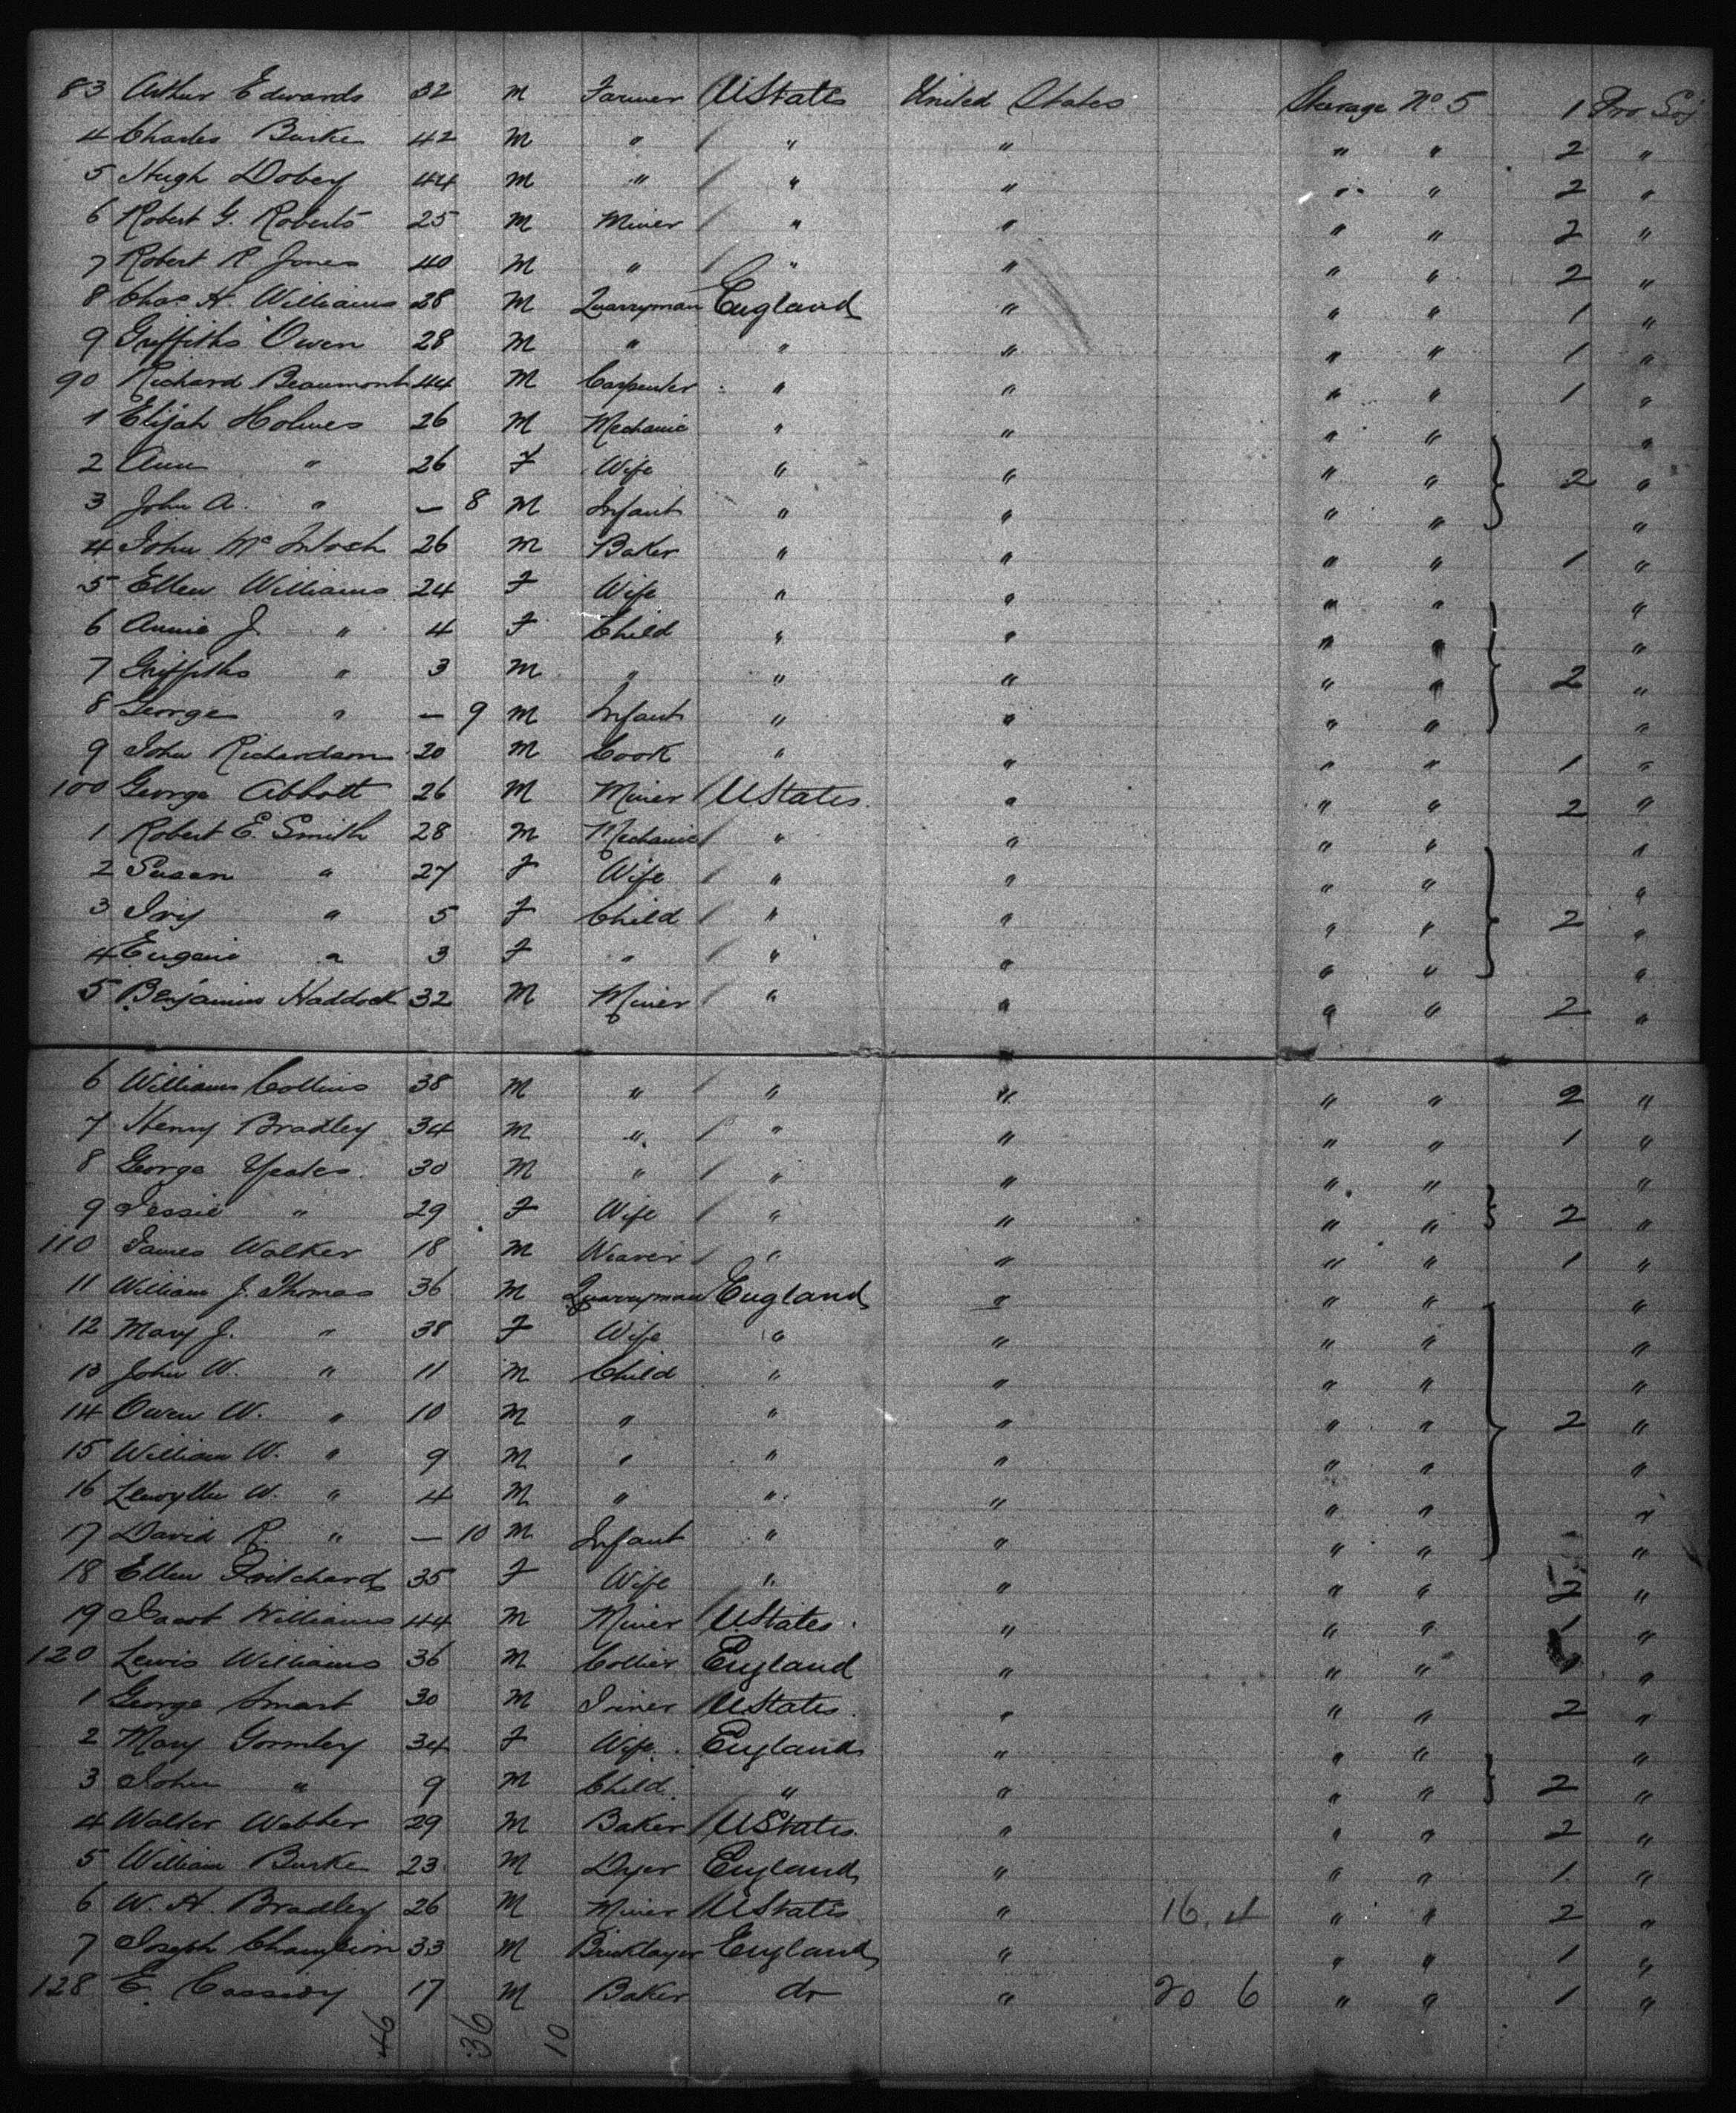 83 Arthur Edwards 32 M Farmer UStates United States Steerage No. 5 1 Pro Soj
4 Charles Burke 42 M " " " " " 2 "
5 Hugh Dobey 44 M " " " " " 2 "
6 Robert G. Roberts 25 M Miner " " " " 2 "
7 Robert R Jones 40 M " " " " " 2 "
8 Chas. H. Williams 28 M Quarryman England " " " 1 "
9 Griffiths Owen 28 M " " " " " 1 "
90 Richard Beaumont 44 M Carpenter " " " " 1 "
1 Elijah Holmes 26 M Mechanic " " " " "
2 Ann " 26 F Wife " " " " 2 "
3 John A. " — 8 M Infant " " " " "
4 John McIntosh 26 M Baker " " " " 1 "
5 Ellen Williams 24 F Wife " " " " "
6 Annie J. " 4 F Child " " " " "
7 Griffiths " 3 M " " " " " 2 "
8 George " — 9 M Infant " " " " "
9 John Richardson 20 M Cook " " " " 1 "
100 George Abbott 26 M Miner UStates " " " 2 "
1 Robert E. Smith 28 M Mechanic " " " " "
2 Susan " 27 F Wife " " " " "
3 Ivy " 5 F Child " " " " 2 "
4 Eugenie " 3 F " " " " " "
5 Benjamin Haddock 32 M Miner " " " " 2 "
6 William Collins 38 M " " " " " 2 "
7 Henry Bradley 34 M " " " " " 1 "
8 George Yeates 30 M " " " " " "
9 Jessie " 29 F Wife " " " " 2 "
110 James Walker 18 M Weaver " " " " 1 "
11 William J. Thomas 36 M Quarryman England " " " "
12 Mary J. " 38 F Wife " " " " "
13 John W. " 11 M Child " " " " "
14 Owen W. " 10 M " " " " " 2 "
15 William W. " 9 M " " " " " "
16 W. " 4 M " " " " " "
17 David R. " — 10 M Infant " " " " "
18 Ellen Pritchard 35 F Wife " " " " 2 "
19 Jacob Williams 44 M Miner UStates " " " 1 "
120 Lewis Williams 36 M Collier England " " " 1 "
1 George Smart 30 M UStates " " " 2 "
2 Mary Gormley 34 F Wife England " " " "
3 John " 9 M Child " " " " 2 "
4 Walter Webber 29 M Baker UStates " " " 2 "
5 William Burke 23 M Dyer England " " " 1 "
6 W. H. Bradley 26 M Miner UStates " 16. 4 " " 2 "
7 Joseph Champion 33 M Bricklayer England " " " 1 "
128 E. Cassidy 17 M Baker do " 20 6 " " 1 "
46 36 10